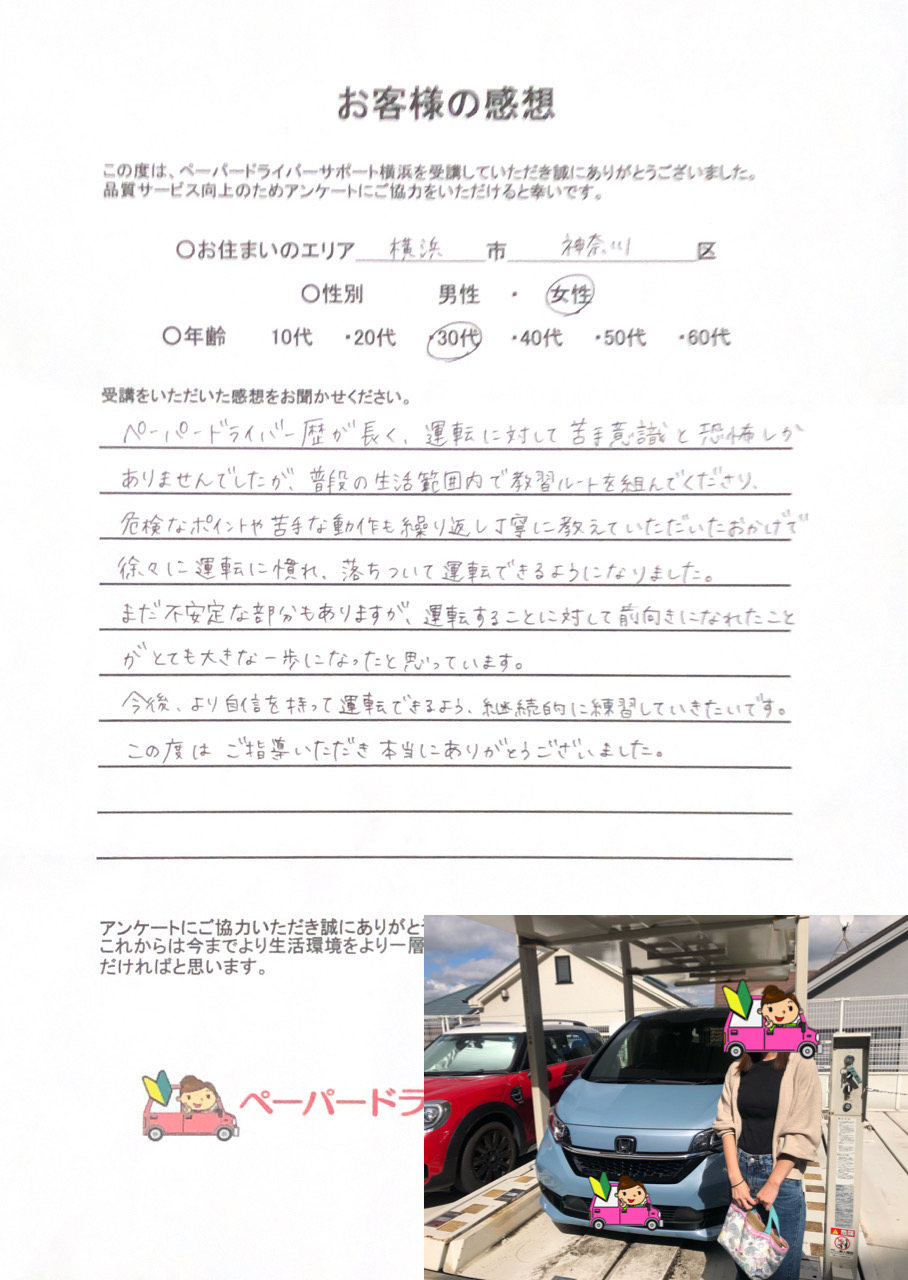 お客様の感想
この度は、ペーパードライバーサポート横浜を受講していただき誠にありがとうございました。
品質サービス向上のためアンケートにご協力をいただけると幸いです。
〇お住まいのエリア 横浜 市 神奈川 区
〇性別 男性 ・ 女性
〇年齢 10代 ・20代 ・30代 ・40代 ・50代 ・60代
受講をいただいた感想をお聞かせください。
ペーパードライバー歴が長く、運転に対して苦手意識と恐怖しか
ありませんでしたが、普段の生活範囲内で教習ルートを組んでくださり、
危険なポイントや苦手な動作も繰り返し丁寧に教えていただいたおかげで
徐々に運転に慣れ、落ちついて運転できるようになりました。
まだ不安定な部分もありますが、運転することに対して前向きになれたこと
がとても大きな一歩になったと思っています。
今後、より自信を持って運転できるよう、継続的に練習していきたいです。
この度はご指導いただき本当にありがとうございました。
アンケートにご協力いただき誠にありがと
これからは今までより生活環境をより一層
だければと思います。
ペーパードラ
危険